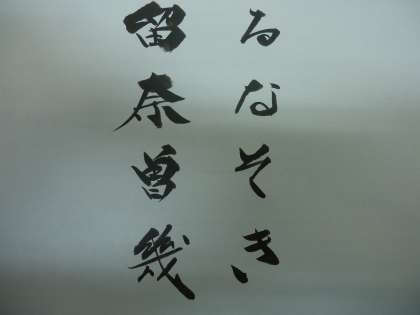 るなそき
留奈曽幾